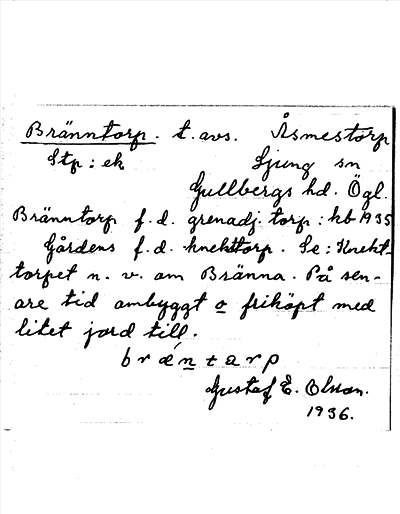 Bränntorp. t. avs. Åsmestorp
Stp: ek Ljung sn
Gullbergs hd. Ögl.
Bränntorp f.d. grenadj. torp: hb 1935
Gårdens f.d. knekttorp. Se: Knekt-
torpet n. v. om Bränna. På sen-
are tid ombyggt o friköpt med
litet jord till.
bräntarp
Gustaf E. Olsson.
1936.